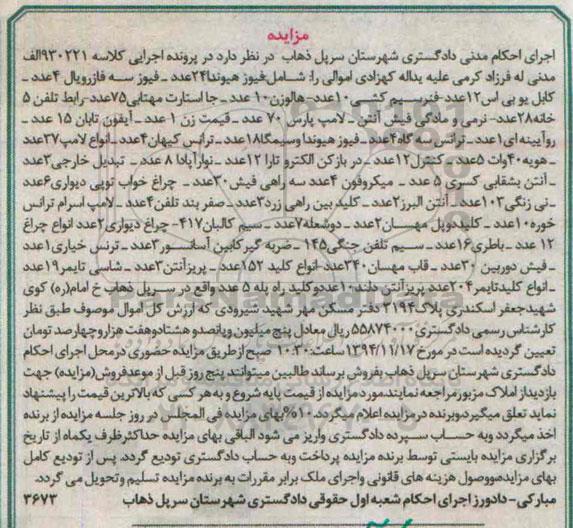 مزایده
اجرای احکام مدنی دادگستری شهرستان سرپل ذهاب در نظر دارد در پرونده اجرایی کلاسه ۹۳۰۲۲۱الف
مدنی له فرزاد کرمی علیه یداله کهزادی اموالی را: شامل:فیوز هیوندا۲۴عدد ـ فیوز سه فازرویال ۴عدد ـ
کابل یو پی اس۱۲عدد-فنرسیم کشی۱۰عدد-هالوزن۱۰ عدد ـ جا استارت مهتابی۷۵عدد-رابط تلفن ۵
خانه۲۸عدد- نرمی و مادگی فیش آنتن ـ لامپ پارس ۷۰ عدد ـ قیمت زن ۱ عدد ـ آیفون تابان ۱۵ عدد ـ
روآیینه ای۱عدد ـ ترانس سه گاه۲عدد ـ فیوز هیوندا وسیمگا۱۸عدد ـ ترانس کیهان۴عدد ـ انواع لامپ۳۷عدد
ـ هویه۴۰وات ۵عدد ـ کنترل۱۲عدد ـ در بازکن الکترو تارا ۱۲عدد ـ نوارآپادا ۸ عدد ـ تبدیل خارجی۳عدد
ـ آنتن بشقابی کسری ۵ عدد ـ میکروفون ۴عدد سه راهی فیش۳۰عدد ـ چراغ خواب توپی دیواری۶عدد
ـ نی زنگی۱۰۳عدد ـ آنتن البرز۲عدد ـ کلید بین راهی زرد۳عدد ـ صفر بند تلفن۴عدد ـ لامپ اسرام ترانس
خوره۱۰عدد ـ کلیددوپل مهسان۲عدد ـ دوشعله۷عدد ـ سیم کالبان۴۱۷- چراغ دیواری۲عدد انواع چراغ
۱۲ عدد ـ باطری۱۶عدد ـ سیم تلفن جنگی۱۴۵ - ضربه گیر کابین آسانسور۲عدد ـ ترنس خیاری۱عدد
ـ فیش دوربین ۳۰عدد ـ قاب مهسان۳۴۰عدد انواع کلید ۱۵۲عدد ـ پریزآنتن۳عدد ـ شاسی تایمر۱۹عدد
ـ انواع کلیدتایمر۲۰۴عدد پریزآنتن دلند۱۰عددوکلید راه پله ۵ عدد واقع در سرپل ذهاب خ امام(ره) کوی
شهیدجعفر اسکندری پلاک۲۱۹۴ دفتر مسکن مهر شهید شیرودی که ارزش کل اموال موصوف طبق نظر
کارشناس رسمی دادگستری ۵۵۸۷۴۰۰۰ ریال معادل پنج میلیون وپانصدو هشتادوهفت هزاروچهارصد تومان
تعیین گردیده است در مورخ ۱۳۹۴/۱۱/۱۷ساعت:۱۰.۳۰ صبح ازطریق مزایده حضوری درمحل اجرای احکام
دادگستری شهرستان سرپل ذهاب بفروش برساند طالبین میتوانند پنج روز قبل از موعدفروش(مزایده) جهت
بازدیداز املاک مزبورمراجعه نمایند.مورد مزایده از قیمت پایه شروع و به هر کسی که بالاترین قیمت را پیشنهاد
نماید تعلق میگیردوبرنده درمزایده اعلام میگردد.۱۰٪بهای مزایده فی المجلس در روز جلسه مزایده از برنده
اخذ میگردد وبه حساب سپرده دادگستری واریز می شود الباقی بهای مزایده حداکثرظرف یکماه از تاریخ
برگزاری مزایده بایستی توسط برنده مزایده پرداخت وبه حساب دادگستری تودیع گردد. پس از تودیع کامل
بهای مزایدهووصول هزینه های قانونی واجرای ملک برابر مقررات به برنده مزایده تسلیم وتحویل می گردد.
مبارکی- دادورز اجرای احکام شعبه اول حقوقی دادگستری شهرستان سرپل ذهاب ۳۶۷۳